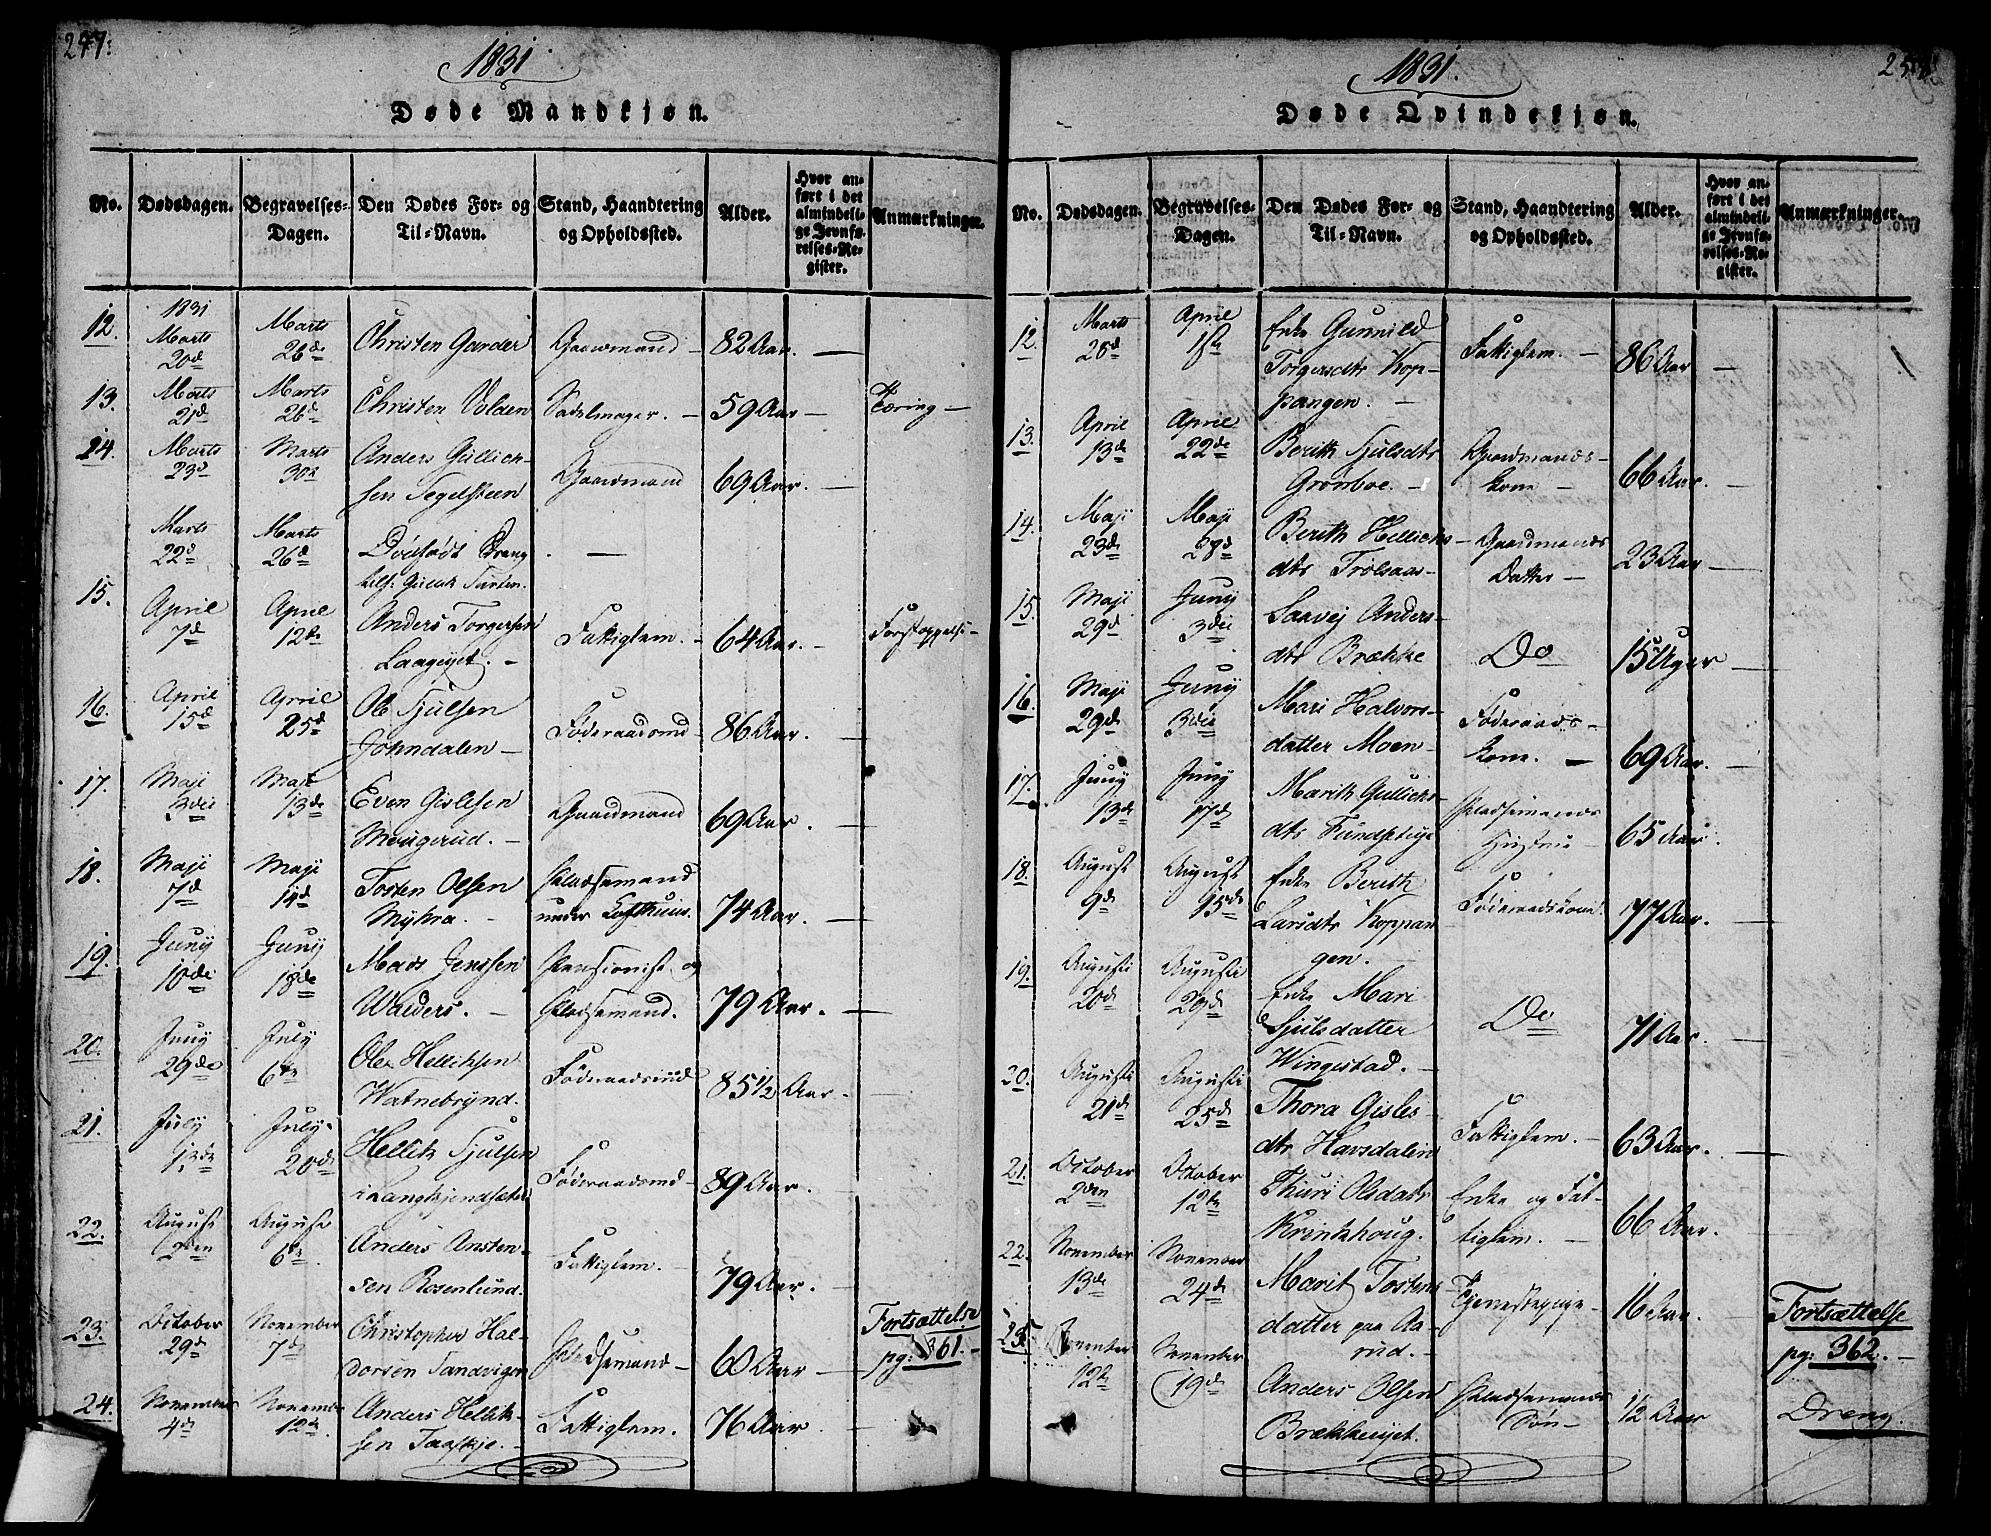 297:
1831.
Døde Mandkjøn.
No. Dødsdagen. Begravelses-Dagen. Den Dødes For- og Til-Navn. Stand, Haandtering og Opholdssted. Alder. Hvor anført i det almindelige Jevnførelses-Register. Anmærkninger.
12. 1831 Marts 20d Marts 26de Christen Garder Gaardmand - 82 Aar. -
13. Marts 21d Marts 26d Christen Volden Sadelmager. - 59 Aar - Tæring -
14. Marts 23d Marts 30d Anders Gullich-
sen Tegelsteen Gaardmand 69 Aar. -
Marts 22d Marts 26d Dødfødt Drang -
15. April 7d April 12te Anders Torgersen
Laagejet. - Fattiglem. - 64 Aar. - Forstoppelse -
16. April 15d April 25d Ole Sjulsen
Johndalen - Føderaadsmd - 86 Aar. -
17. Maji 3die Maji 13de Even Gislesen
Meugerud. - Gaardmand 69 Aar. -
18. Maji 7d Maji 14d Tosten Olsen
Myhra. - Pladsemand
under Lofthuus. 74 Aar. -
19. Juny 10de Juny 18de Mads Jenssen
Walders. - Pensionist og
Pladsemand. 79 Aar. -
20. Juny 29de July 6te Ole Hellichsen
Watnebrynd. Føderaadsmd 85 1/2 Aar. -
21. July 13de July 20d Hellik Sjulsen
i Langkjendsæter Føderaadsmd - 89 Aar. -
22. August 2den August 6te Anders Ansten-
sen Rosenlund. Fattiglem. - 79 Aar. -
23. October 29d November 7d Christopher Hal-
dorsen Sandvigen Pladsemand - 60 Aar - Fortsættelse
pg: 361. -
24. November 4d November 12te Anders Hellik-
sen Taaskje. - Fattiglem. 76 Aar -
1831.
Døde Qvindekjøn.
No. Dødsdagen. Begravelses-Dagen. Den Dødes For- og Til-Navn. Stand, Haandtering og Opholdssted. Alder. Hvor anført i det almindelige Jevnførelses-Register. Anmærkninger.
12. Marts 28d April 1ste Enke Gunnild
Torgersdtr Kop-
pangen. - Fattiglem. - 86 Aar -
13. April 13de April 22de Berith Sjulsdtr
Grønboe. - Gaardmands-
kone - 66 Aar. -
14. Maji 23de Maji 28d Berith Hellichs-
dtr Trolsaas - Gaardmands
Datter - 23 Aar -
15. Maji 29d Juny 3die Laavej Anders-
dtr Brække Do 15 Uger -
16. Maji 29de Juny 3die Mari Halvors-
datter Moen - Føderaads-
kone. - 69 Aar. -
17. Juny 13de Juny 17d Marith Gullichs-
dtr Pladsemands
Hustru - 65 Aar.
18. August 9d August 15de Enke Berith
Larsdtr Koppan
gen. - Føderaadskone. 77 Aar. -
19. Augusti 20d Augusti 29d Enke Mari
Sjulsdatter
Wingestad. - Do 71 Aar. -
20. Augusti 21d Augusti 25d Thora Gisles-
dtr Havsdalen Fattiglem. - 63 Aar. -
21. October 2den October 12te Thuri Olsdatr
Krinkhoug. Enke og Fat-
tiglem. - 66 Aar. -
22. November 13de November 24de Marit Tostens
datter paa Aa-
rud. - Tjenestepige - 16 Aar. - Fortsættelse
pg: 362. -
23. November 12te November 19de Anders Olsen
Brækkeejet. Pladsemands
Søn - 1/2 Aar Dreng.